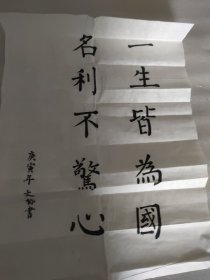 一生皆為國
名利不驚心
庚寅年
書